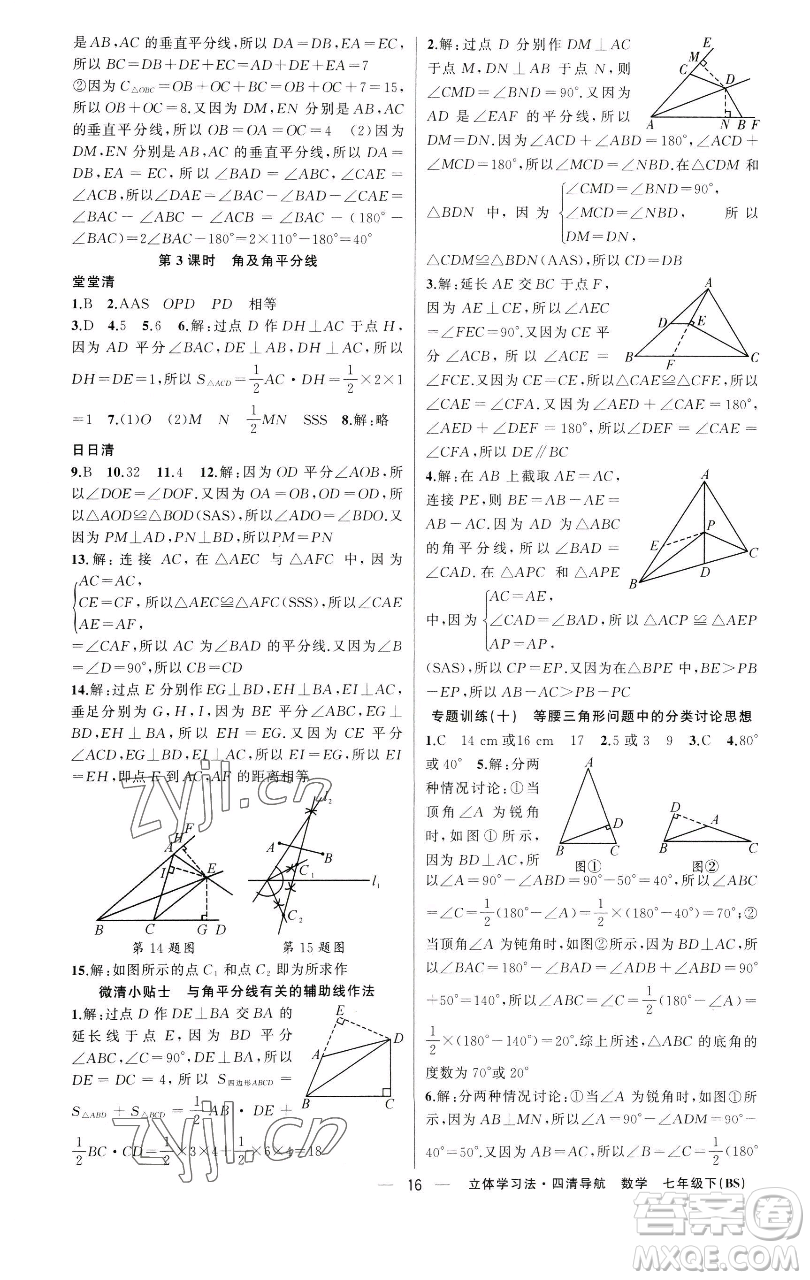 是AB,AC的垂直平分线,所以DA=DB,EA=EC,
所以BC=DB+DE+EC=AD+DE+EA=7
②因为C△OBC=OB+OC+BC=OB+OC+7=15,
所以OB+OC=8.又因为DM,EN分别是AB,AC
的垂直平分线,所以OB=OA=OC=4 (2)因为
DM,EN分别是AB,AC的垂直平分线,所以DA=
DB,EA=EC,所以∠BAD=∠ABC,∠CAE=
∠ACB,所以∠DAE=∠BAC-∠BAD-∠CAE=
∠BAC-∠ABC-∠ACB=∠BAC-(180°-
∠BAC)=2∠BAC-180°=2×110°-180°=40°
第3课时 角及角平分线
堂堂清
1.B 2.AAS OPD PD 相等
3.D 4.5 5.6 6.解:过点D作DH⊥AC于点H,
因为AD平分∠BAC,DE⊥AB,DH⊥AC,所以
DH=DE=1,所以S△ACD=1/2AC·DH=1/2×2×1
=1 7.(1)O (2)M N 1/2MN SSS 8.解:略
日日清
9.B 10.32 11.4 12.解:因为OD平分∠AOB,所
以∠DOE=∠DOF.又因为OA=OB,OD=OD,所
以△AOD≌△BOD(SAS),所以∠ADO=∠BDO.又
因为PM⊥AD,PN⊥BD,所以PM=PN
13.解:连接AC,在△AEC与△AFC中,因为
{AC=AC,
CE=CF,所以△AEC≌△AFC(SSS),所以∠CAE
AE=AF,
=∠CAF,所以AC为∠BAD的平分线.又因为∠B
=∠D=90°,所以CB=CD
14.解:过点E分别作EG⊥BD,EH⊥BA,EI⊥AC,
垂足分别为G,H,I,因为BE平分∠ABC,EG⊥
BD,EH⊥BA,所以EH=EG.因为CE平分∠ACD,
EG⊥BD,EI⊥AC,所以EI=EG,所以EI
=EH,即点E到AC,AF的距离相等
A H F E I B C G D
第14题图
A B C1 C2 l1 l2
第15题图
15.解:如图所示的点C1和点C2即为所求作
微清小贴士 与角平分线有关的辅助线作法
1.解:过点D作DE⊥BA交BA的
延长线于点E,因为BD平分
∠ABC,∠C=90°,DE⊥BA,所以
DE=DC=4,所以S四边形ABCD=
S△ABD+S△BCD=1/2AB·DE+
1/2BC·CD=1/2×3×4+1/2×6×4=18
E D A B C
2.解:过点D分别作DM⊥AC
于点M,DN⊥AB于点N,则
∠CMD=∠BND=90°.又因为
AD是∠EAF的平分线,所以
DM=DN.因为∠ACD+∠ABD=180°,∠ACD+
∠MCD=180°,所以∠MCD=∠NBD.在△CDM和
△BDN中,因为{∠CMD=∠BND=90°,
∠MCD=∠NBD,所以
DM=DN,
△CDM≌△BDN(AAS),所以CD=BD
E M C D A N B F
3.解:延长AE交BC于点F,
因为AE⊥CE,所以∠AEC
=∠FEC=90°.又因为CE平
分∠ACB,所以∠ACE=
∠FCE.又因为CE=CE,所以△CAE≌△CFE,所以
∠CAE=∠CFA.又因为∠AED+∠CAE=180°,
∠AED+∠DEF=180°,所以∠DEF=∠CAE=
∠CFA,所以DE∥BC
A D E B F C
4.解:在AB上截取AE=AC,
连接PE,则因为AD为△ABC
的角平分线,所以∠BAD=
∠CAD.在△ACP和△APE
中,因为{AC=AE,
∠CAD=∠BAD,所以△ACP≌△AEP
AP=AP,
(SAS),所以CP=EP.又因为在△BPE中,BE>PB
-EP,所以AB-AC>PB-PC
A P E B D C
专题训练(十) 等腰三角形问题中的分类讨论思想
1.C 14 cm或16 cm 17 2.5或3 9 3.C 4.80°
或40° 5.解:分两
种情况讨论:①当
顶角∠A为锐角
时,如图①所示,
因为BD⊥AC,所
以∠A=90°-∠ABD=90°-50°=40°,所以∠ABC
=∠C=1/2(180°-∠A)=1/2(180°-40°)=70°;②
当顶角∠A为钝角时,如图②所示,因为BD⊥AC,所
以∠BAC=∠D+∠ABD=90°
+50°=140°,所以∠ABC=∠C=1/2(180°-∠A)=
1/2×(180°-140°)=20°.综上所述,△ABC的底角的
度数为70°或20°
A D B C
图①
D A B C
图②
6.解:分两种情况讨论:①当∠A为锐角时,如图①所
示,因为AB⊥MN,所以∠A=90°-∠ANM=90°-
40°=50°.又因为AB=AC,所以∠B=∠C=1/2(180°
16 立体学习法·四清导航 数学 七年级下(BS)
zyjl.cn
zyjl.cn
答案圈
MXQE.COM